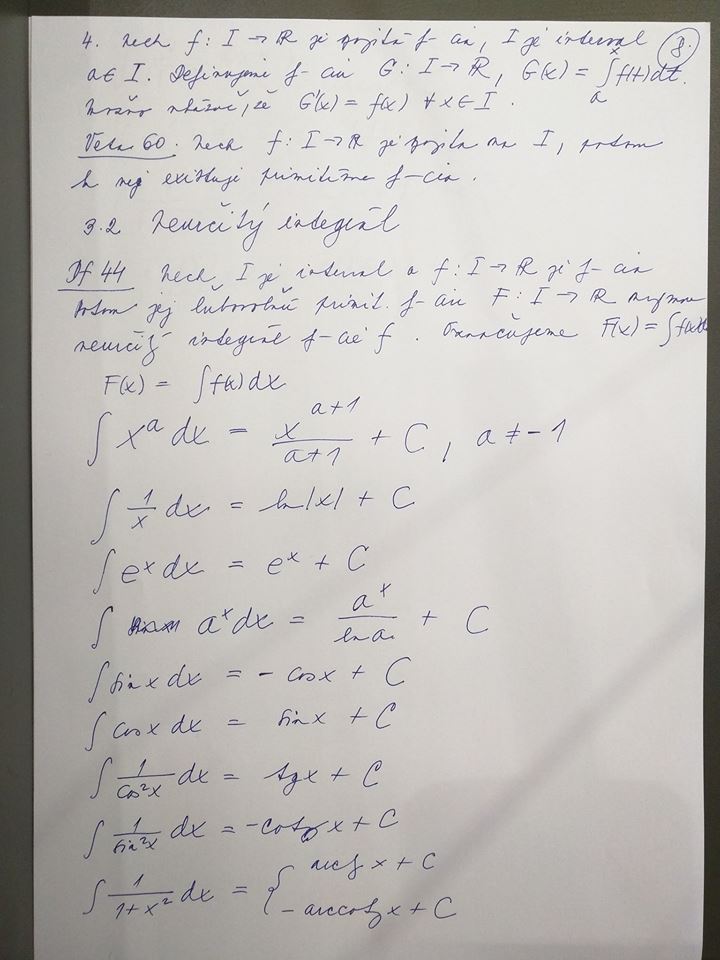 8.
4. Nech f: I → R je spojitá f-cia, I je interval
a ∈ I. Definujeme f-ciu G: I → R, G(x) = ∫ₐˣ f(t)dt.
Možno ukázať, že G'(x) = f(x) ∀ x ∈ I.
Veta 60. Nech f: I → R je spojitá na I, potom
k nej existuje primitívna f-cia.
3.2 Neurčitý integrál
Df 44 Nech I je interval a f: I → R je f-cia
Potom jej ľubovolnú primit. f-ciu F: I → R nazývame
neurčitý integrál f-cie f. Označujeme F(x) = ∫f(x)dx
F(x) = ∫f(x)dx
∫ xᵃ dx = xᵃ⁺¹/(a+1) + C, a ≠ -1
∫ 1/x dx = ln|x| + C
∫ eˣ dx = eˣ + C
∫ aˣ dx = aˣ/ln a + C
∫ sin x dx = - cos x + C
∫ cos x dx = sin x + C
∫ 1/cos²x dx = tg x + C
∫ 1/sin²x dx = -cotg x + C
∫ 1/(1+x²) dx = { arctg x + C
- arccotg x + C